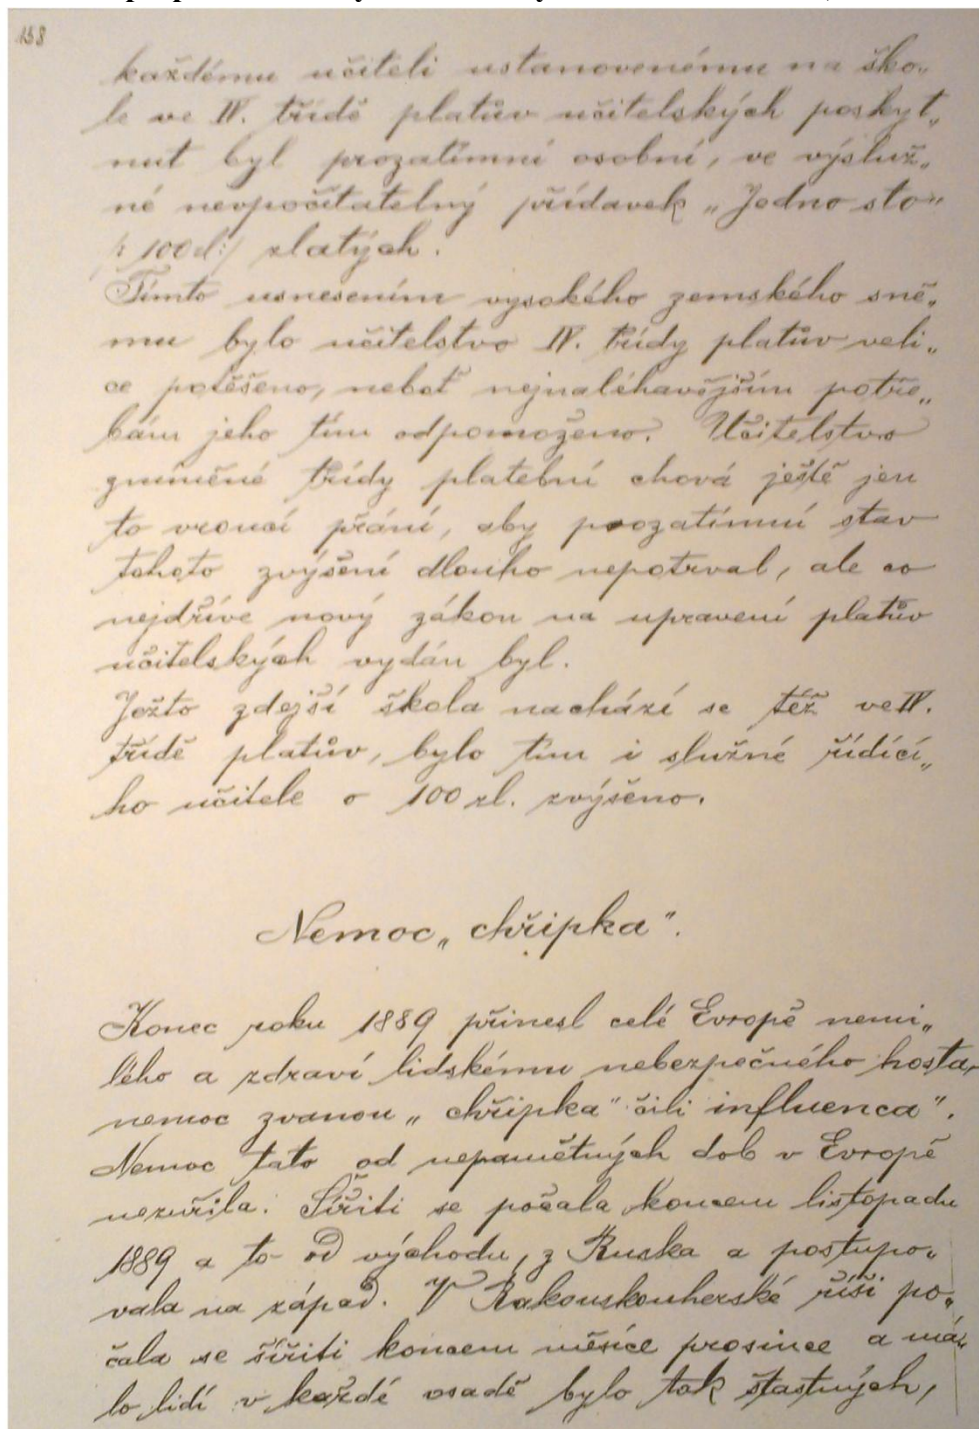 158
každému učiteli ustanovenému na ško„
le ve IV. třídě platův učitelských poskyt„
nut byl prozatímní osobní, ve výsluž„
né nevpočítatelný přídavek „Jedno sto"
/: 100 zl :/ zlatých.
Tímto usnesením vysokého zemského sně„
mu bylo učitelstvo IV. třídy platův veli„
ce potěšeno, neboť nejnaléhavějším potře„
bám jeho tím odpomoženo. Učitelstvo
zmíněné třídy platební chová ještě jen
to vroucí přání, aby prozatímní stav
tohoto zvýšení dlouho nepotrval, ale co
nejdříve nový zákon na upravení platův
učitelských vydán byl.
Ježto zdejší škola nachází se též ve IV.
třídě platův, bylo tím i služné řídící„
ho učitele o 100 zl. zvýšeno.
Nemoc „chřipka".
Konec roku 1889 přinesl celé Evropě nemi„
lého a zdraví lidskému nebezpečného hosta,
nemoc zvanou „chřipka" čili influenca".
Nemoc tato od nepamětných dob v Evropě
nezuřila. Šířiti se počala koncem listopadu
1889 a to od východu, z Ruska a postupo„
vala na západ. V Rakouskouherské říši po„
čala se šířiti koncem měsíce prosince a má„
lo lidí v každé osadě bylo tak šťastných,